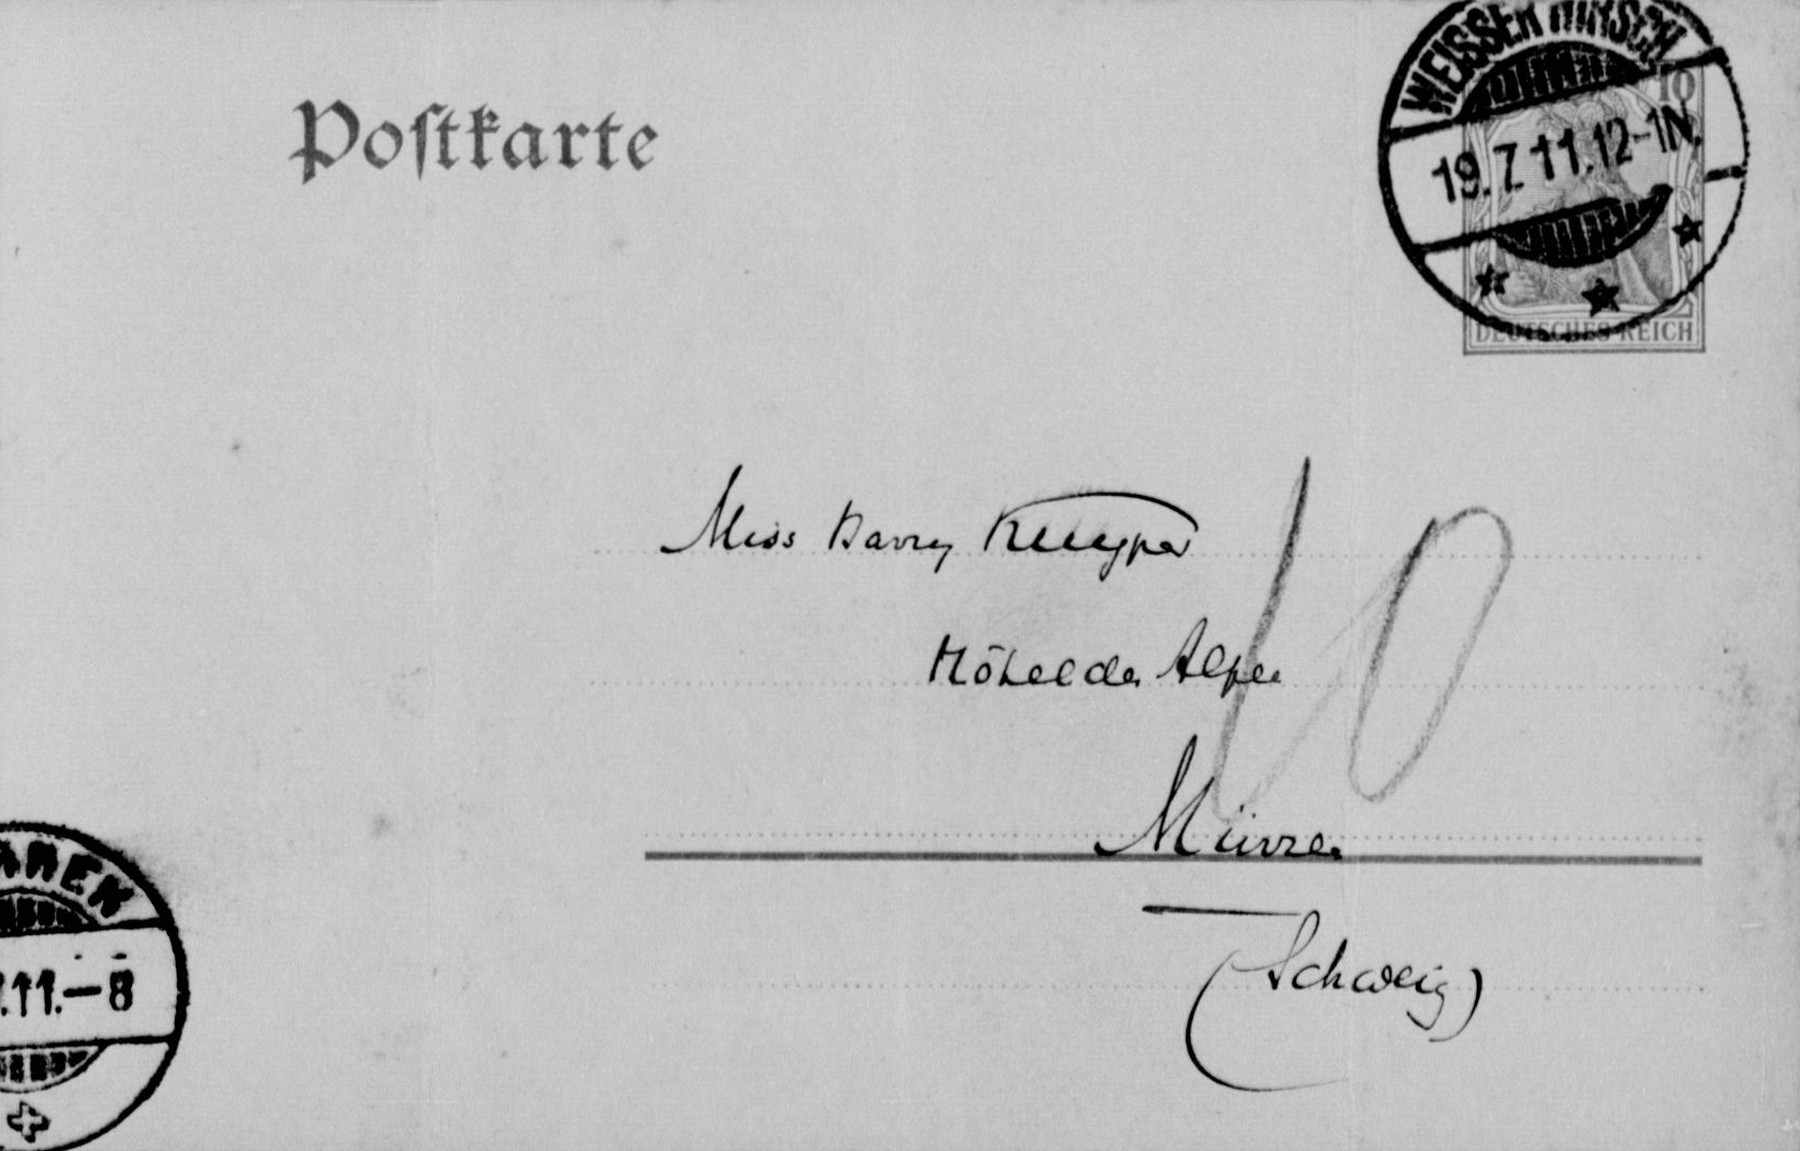 Postkarte
WEISSER HIRSCH
19.7.11.12-1N.
10
DEUTSCHES REICH
Miss Harry Kuyper
10
Hôtel des Alpes
Mürren
(Schweiz)
RREN
.11.-8